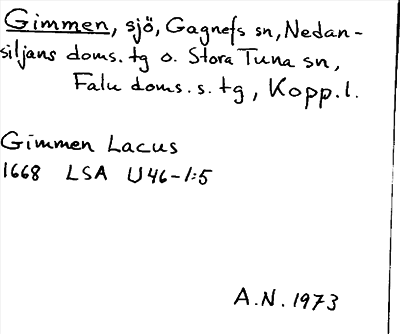 Gimmen, sjö, Gagnefs sn, Nedan-
siljans doms. tg o. Stora Tuna sn,
Falu doms. s. tg, Kopp. l.
Gimmen Lacus
1668 LSA U46-1:5
A.N. 1973